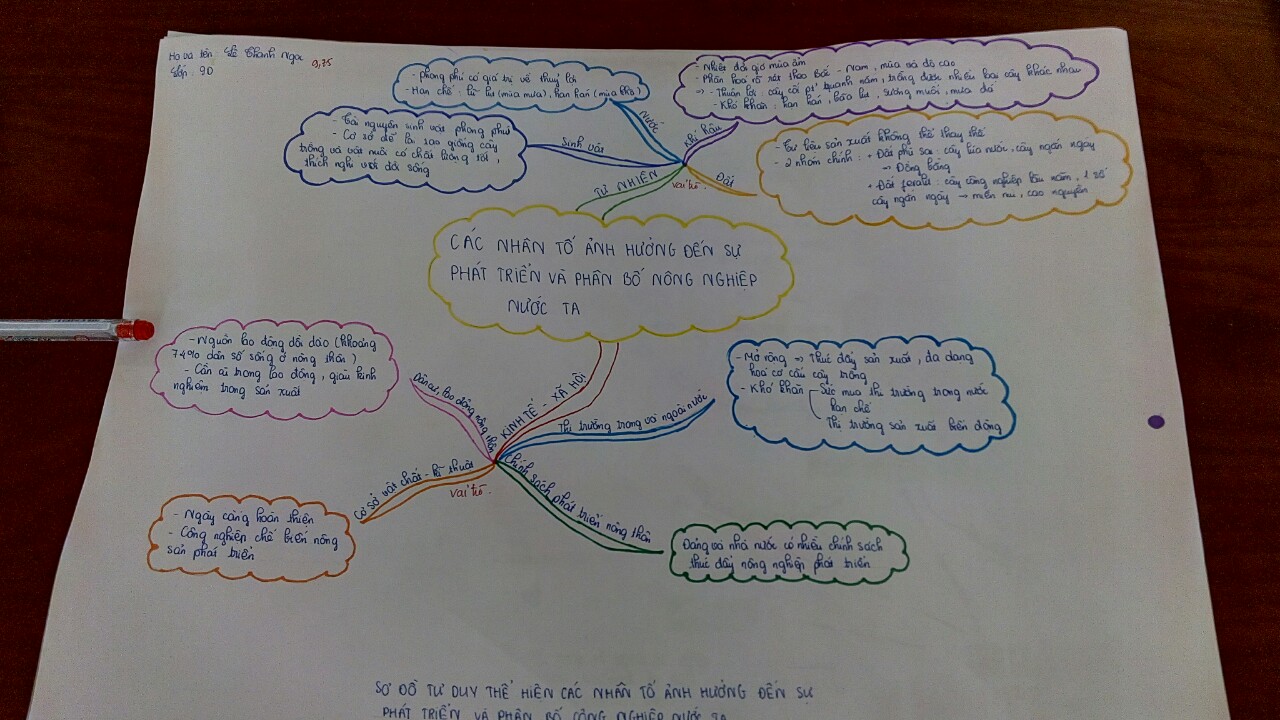 Họ và tên: Lê Thanh Ngọc
9,75
Lớp: 9D
- phong phú có giá trị về thuỷ lợi
- Hạn chế: lũ lụt (mùa mưa), hạn hán (mùa khô)
- Nhiệt đới gió mùa ẩm
- Phân hoá rõ rệt theo Bắc - Nam, mùa và độ cao
=> - Thuận lợi: cây cối pt' quanh năm, trồng được nhiều loại cây khác nhau
- Khó khăn: hạn hán, bão lụt, sương muối, mưa đá
- Tài nguyên sinh vật phong phú
- Cơ sở để lai tạo giống cây
trồng và vật nuôi có chất lượng tốt,
thích nghi với đời sống
- Tư liệu sản xuất không thể thay thế
- 2 nhóm chính: + Đất phù sa: cây lúa nước, cây ngắn ngày
→ Đồng bằng
+ Đất feralit: cây công nghiệp lâu năm, 1 số
cây ngắn ngày → miền núi, cao nguyên
Nước
Khí hậu
Sinh vật
Đất
TỰ NHIÊN
vai trò.
CÁC NHÂN TỐ ẢNH HƯỞNG ĐẾN SỰ
PHÁT TRIỂN VÀ PHÂN BỐ NÔNG NGHIỆP
NƯỚC TA
- Nguồn lao động dồi dào (khoảng
74% dân số sống ở nông thôn)
- Cần cù trong lao động, giàu kinh
nghiệm trong sản xuất
Dân cư, lao động nông thôn
KINH TẾ - XÃ HỘI
Thị trường trong và ngoài nước
- Mở rộng → Thúc đẩy sản xuất, đa dạng
hoá cơ cấu cây trồng
- Khó khăn - Sức mua thị trường trong nước
hạn chế
- Thị trường sản xuất biến động
Cơ sở vật chất - kĩ thuật
vai trò.
Chính sách phát triển nông thôn
- Ngày càng hoàn thiện
- Công nghiệp chế biến nông
sản phát triển
Đảng và nhà nước có nhiều chính sách
thúc đẩy nông nghiệp phát triển
SƠ ĐỒ TƯ DUY THỂ HIỆN CÁC NHÂN TỐ ẢNH HƯỞNG ĐẾN SỰ
PHÁT TRIỂN VÀ PHÂN BỐ CÔNG NGHIỆP NƯỚC TA